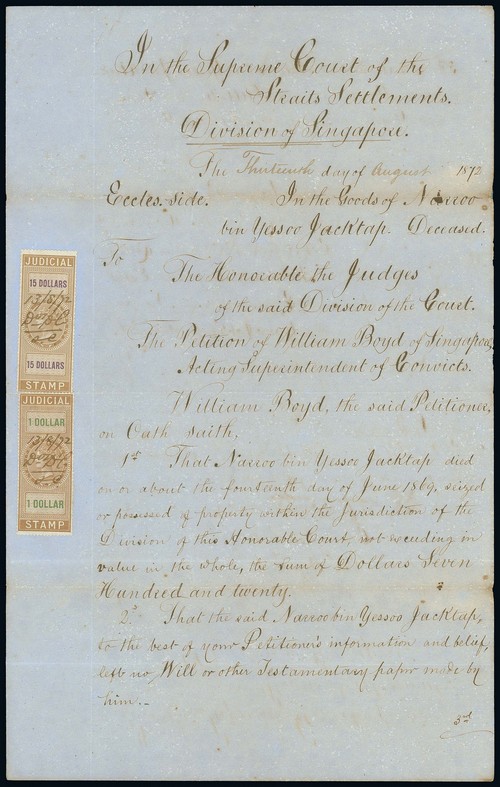 In the Supreme Court of the
Straits Settlements.
Division of Singapore.
The Thirteenth day of August 1872
Eccles. side. In the Goods of Narroo
bin Yessoo Jacktap. Deceased.
To
The Honorable the Judges
of the said Division of the Court.
The Petition of William Boyd of Singapore,
Acting Superintendent of Convicts.
William Boyd, the said Petitioner,
on Oath saith,
1st That Narroo bin Yessoo Jacktap died
on or about the fourteenth day of June 1869, seized
or possessed of property within the Jurisdiction of the
Division of this Honorable Court, not exceeding in
value in the whole, the sum of Dollars Seven
Hundred and twenty.
2d That the said Narroo bin Yessoo Jacktap,
to the best of your Petitioner's information and belief,
left no Will or other Testamentary paper made by
him.-
3rd
JUDICIAL
15 DOLLARS
13/8/72
15 DOLLARS
STAMP
JUDICIAL
1 DOLLAR
13/8/72
1 DOLLAR
STAMP